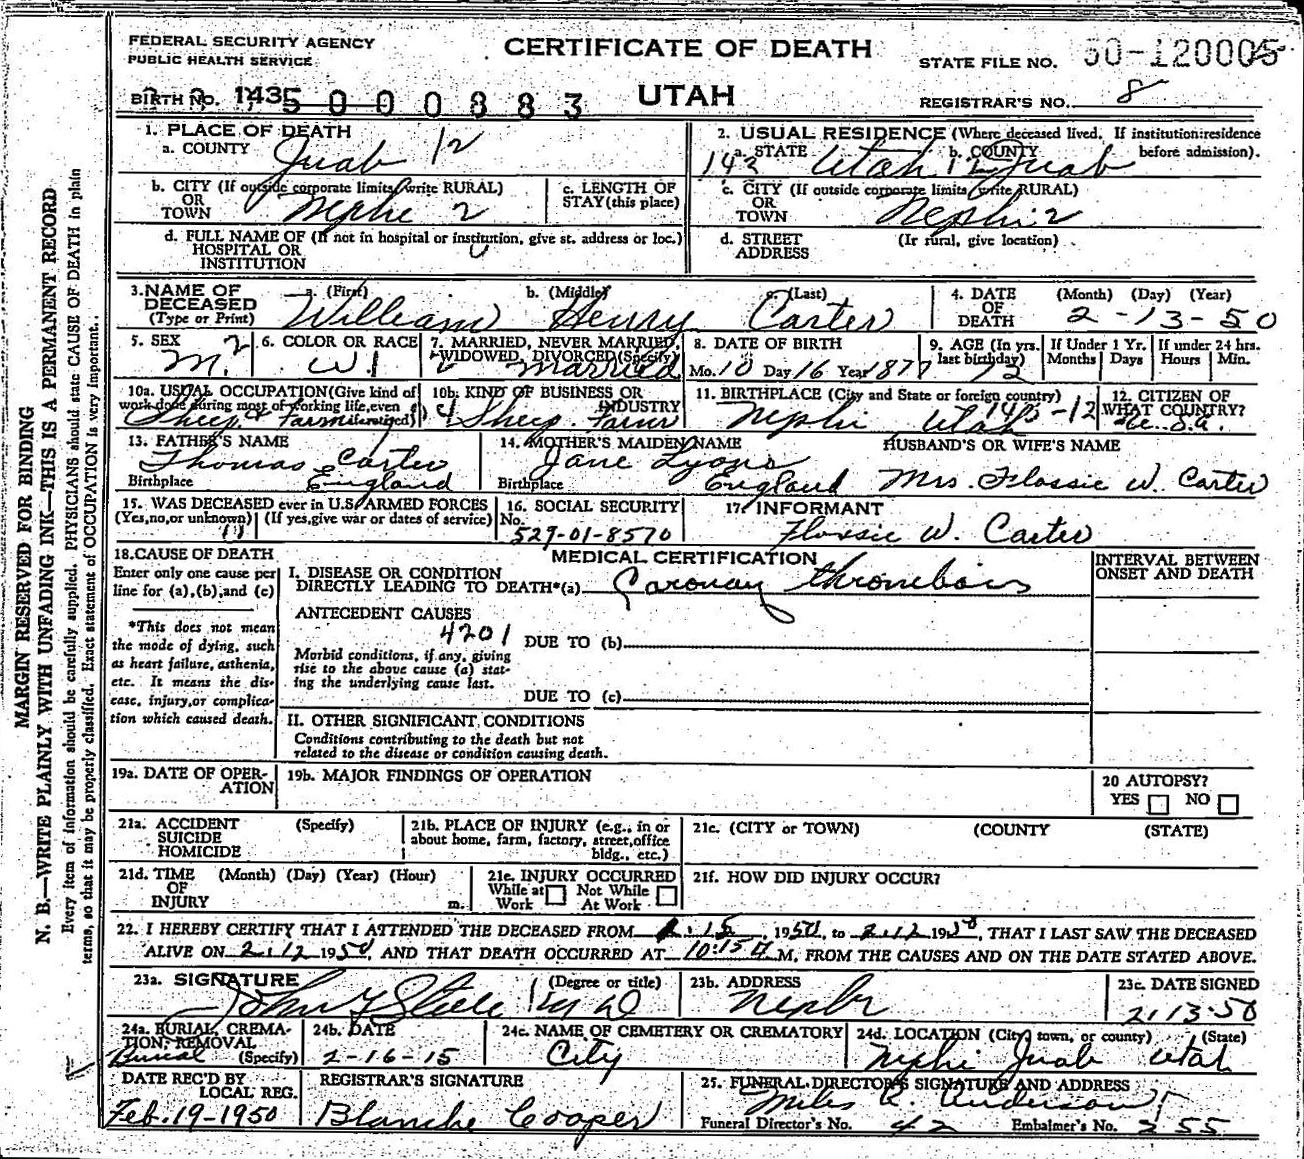 FEDERAL SECURITY AGENCY
PUBLIC HEALTH SERVICE
CERTIFICATE OF DEATH
UTAH
STATE FILE NO. 50-120005
BIRTH NO. 1435 000883
REGISTRAR'S NO. 8
MARGIN RESERVED FOR BINDING
N. B.—WRITE PLAINLY WITH UNFADING INK—THIS IS A PERMANENT RECORD
Every item of information should be carefully supplied. PHYSICIANS should state CAUSE OF DEATH in plain
terms, so that it may be properly classified. Exact statement of OCCUPATION is very important.
1. PLACE OF DEATH
a. COUNTY Juab 12
2. USUAL RESIDENCE (Where deceased lived. If institution:residence
before admission).
143 a. STATE Utah b. COUNTY 12 Juab
b. CITY (If outside corporate limits, write RURAL)
OR
TOWN Nephi 2
c. LENGTH OF
STAY (this place)
c. CITY (If outside corporate limits, write RURAL)
OR
TOWN Nephi 2
d. FULL NAME OF (If not in hospital or institution, give st. address or loc.)
HOSPITAL OR
INSTITUTION
d. STREET
ADDRESS
(If rural, give location)
3. NAME OF
DECEASED
(Type or Print)
a. (First) William
b. (Middle) Henry
c. (Last) Carter
4. DATE
OF
DEATH
(Month) (Day) (Year)
2-13-50
5. SEX
M. 2
6. COLOR OR RACE
W 1
7. MARRIED, NEVER MARRIED,
WIDOWED, DIVORCED (Specify)
2 married
8. DATE OF BIRTH
Mo. 10 Day 16 Year 1877
9. AGE (In yrs. last birthday)
72
If Under 1 Yr.
Months Days
If under 24 hrs.
Hours Min.
10a. USUAL OCCUPATION (Give kind of
work done during most of working life, even if retired)
Sheep Farm
10b. KIND OF BUSINESS OR
INDUSTRY
Sheep Farm
11. BIRTHPLACE (City and State or foreign country)
Nephi Utah 143-12
12. CITIZEN OF
WHAT COUNTRY?
U.S.A.
13. FATHER'S NAME
Thomas Carter
Birthplace England
14. MOTHER'S MAIDEN NAME
Jane Lyons
Birthplace England
HUSBAND'S OR WIFE'S NAME
Mrs. Flossie W. Carter
15. WAS DECEASED ever in U.S. ARMED FORCES
(Yes, no, or unknown) (If yes, give war or dates of service)
16. SOCIAL SECURITY
No.
529-01-8570
17. INFORMANT
Flossie W. Carter
18. CAUSE OF DEATH
Enter only one cause per
line for (a), (b), and (c)
*This does not mean
the mode of dying, such
as heart failure, asthenia,
etc. It means the dis-
ease, injury, or complica-
tion which caused death.
MEDICAL CERTIFICATION
INTERVAL BETWEEN
ONSET AND DEATH
I. DISEASE OR CONDITION
DIRECTLY LEADING TO DEATH*(a) Coronay thrombois
ANTECEDENT CAUSES
4201
DUE TO (b)
Morbid conditions, if any, giving
rise to the above cause (a) stat-
ing the underlying cause last.
DUE TO (c)
II. OTHER SIGNIFICANT CONDITIONS
Conditions contributing to the death but not
related to the disease or condition causing death.
19a. DATE OF OPER-
ATION
19b. MAJOR FINDINGS OF OPERATION
20 AUTOPSY?
YES NO
21a. ACCIDENT
SUICIDE
HOMICIDE
(Specify)
21b. PLACE OF INJURY (e.g., in or
about home, farm, factory, street, office
bldg., etc.)
21c. (CITY or TOWN) (COUNTY (STATE)
21d. TIME
OF
INJURY
(Month) (Day) (Year) (Hour)
m.
21e. INJURY OCCURRED
While at
Work
Not While
At Work
21f. HOW DID INJURY OCCUR?
22. I HEREBY CERTIFY THAT I ATTENDED THE DECEASED FROM 15, 1950, to 2.12 1950, THAT I LAST SAW THE DECEASED
ALIVE ON 2.12 1950, AND THAT DEATH OCCURRED AT 10:15 M, FROM THE CAUSES AND ON THE DATE STATED ABOVE.
23a. SIGNATURE (Degree or title)
John Steele MD
23b. ADDRESS
Nephi
23c. DATE SIGNED
2.13.50
24a. BURIAL, CREMA-
TION, REMOVAL
(Specify)
Burial
24b. DATE
2-16-15
24c. NAME OF CEMETERY OR CREMATORY
City
24d. LOCATION (City, town, or county) (State)
Nephi Juab Utah
DATE REC'D BY
LOCAL REG.
Feb. 19-1950
REGISTRAR'S SIGNATURE
Blanche Cooper
25. FUNERAL DIRECTOR'S SIGNATURE AND ADDRESS
Miles R. Anderson
Funeral Director's No. 42 Embalmer's No. 255